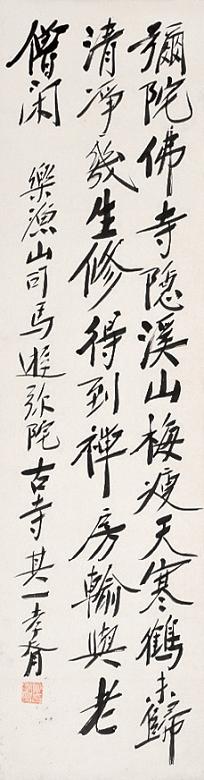 彌陀佛寺隱溪山梅瘦天寒鶴未歸
清淨幾生修得到禪房輸與老
僧闲
樂漁山司馬遊弥陀古寺其一孝胥